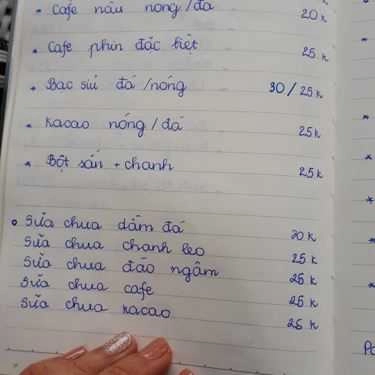 * Cafe nâu nóng/đá 20k
* Cafe phin đặc biệt 25k
* Bạc sỉu đá/nóng 30/25k
* Kacao nóng/đá 25k
* Bột sắn + chanh 25k
o Sữa chua dầm đá 20k
Sữa chua chanh leo 25k
Sữa chua đào ngâm 25k
Sữa chua cafe 25k
Sữa chua kacao 25k